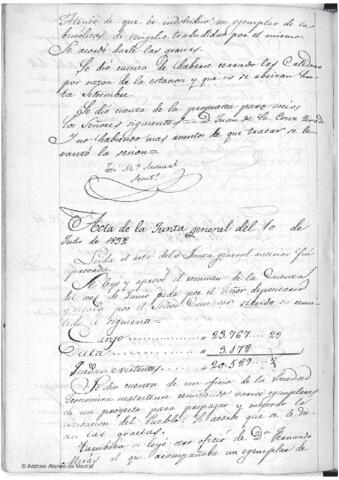 Ateneo de que es individuo un ejemplar de las
bucólicas de Virgilio, traducidas por el mismo
Se acordó darle las gracias.
Se dió cuenta de haberse cerrado las Cátedras
por razon de la estacion y que no se abrirán hasta
Setiembre
Se dió cuenta de la propuesta para socios
los Señores siguientes = D. Juan de la Cruz
y no habiendo mas asuntos de que tratar se le
vantó la sesion =
José Mª
Acta de la Junta general del 10 de
Julio de 1838
Leida el acta de la Junta general anterior fué
aprovada
Se leyó y aprovó el resumen de la Cuenta
del mes de Junio dada por el Señor depositario
y visada por el Señor Contador siendo su
siguiente =
Cargo " 23.767 .. 23
Data " 3.178
Quedan existentes " 20.589
Se dio cuenta de un oficio de la Sociedad
Económica matritense remitiendo varios ejemplares
de un proyecto para propagar y mejorar la
educacion del Pueblo. Se acordó que se le die
sen las gracias.
Tambien se leyó otro oficio de Dn. Fernando
al que acompañaba un ejemplar de
© Archivo Ateneo de Madrid